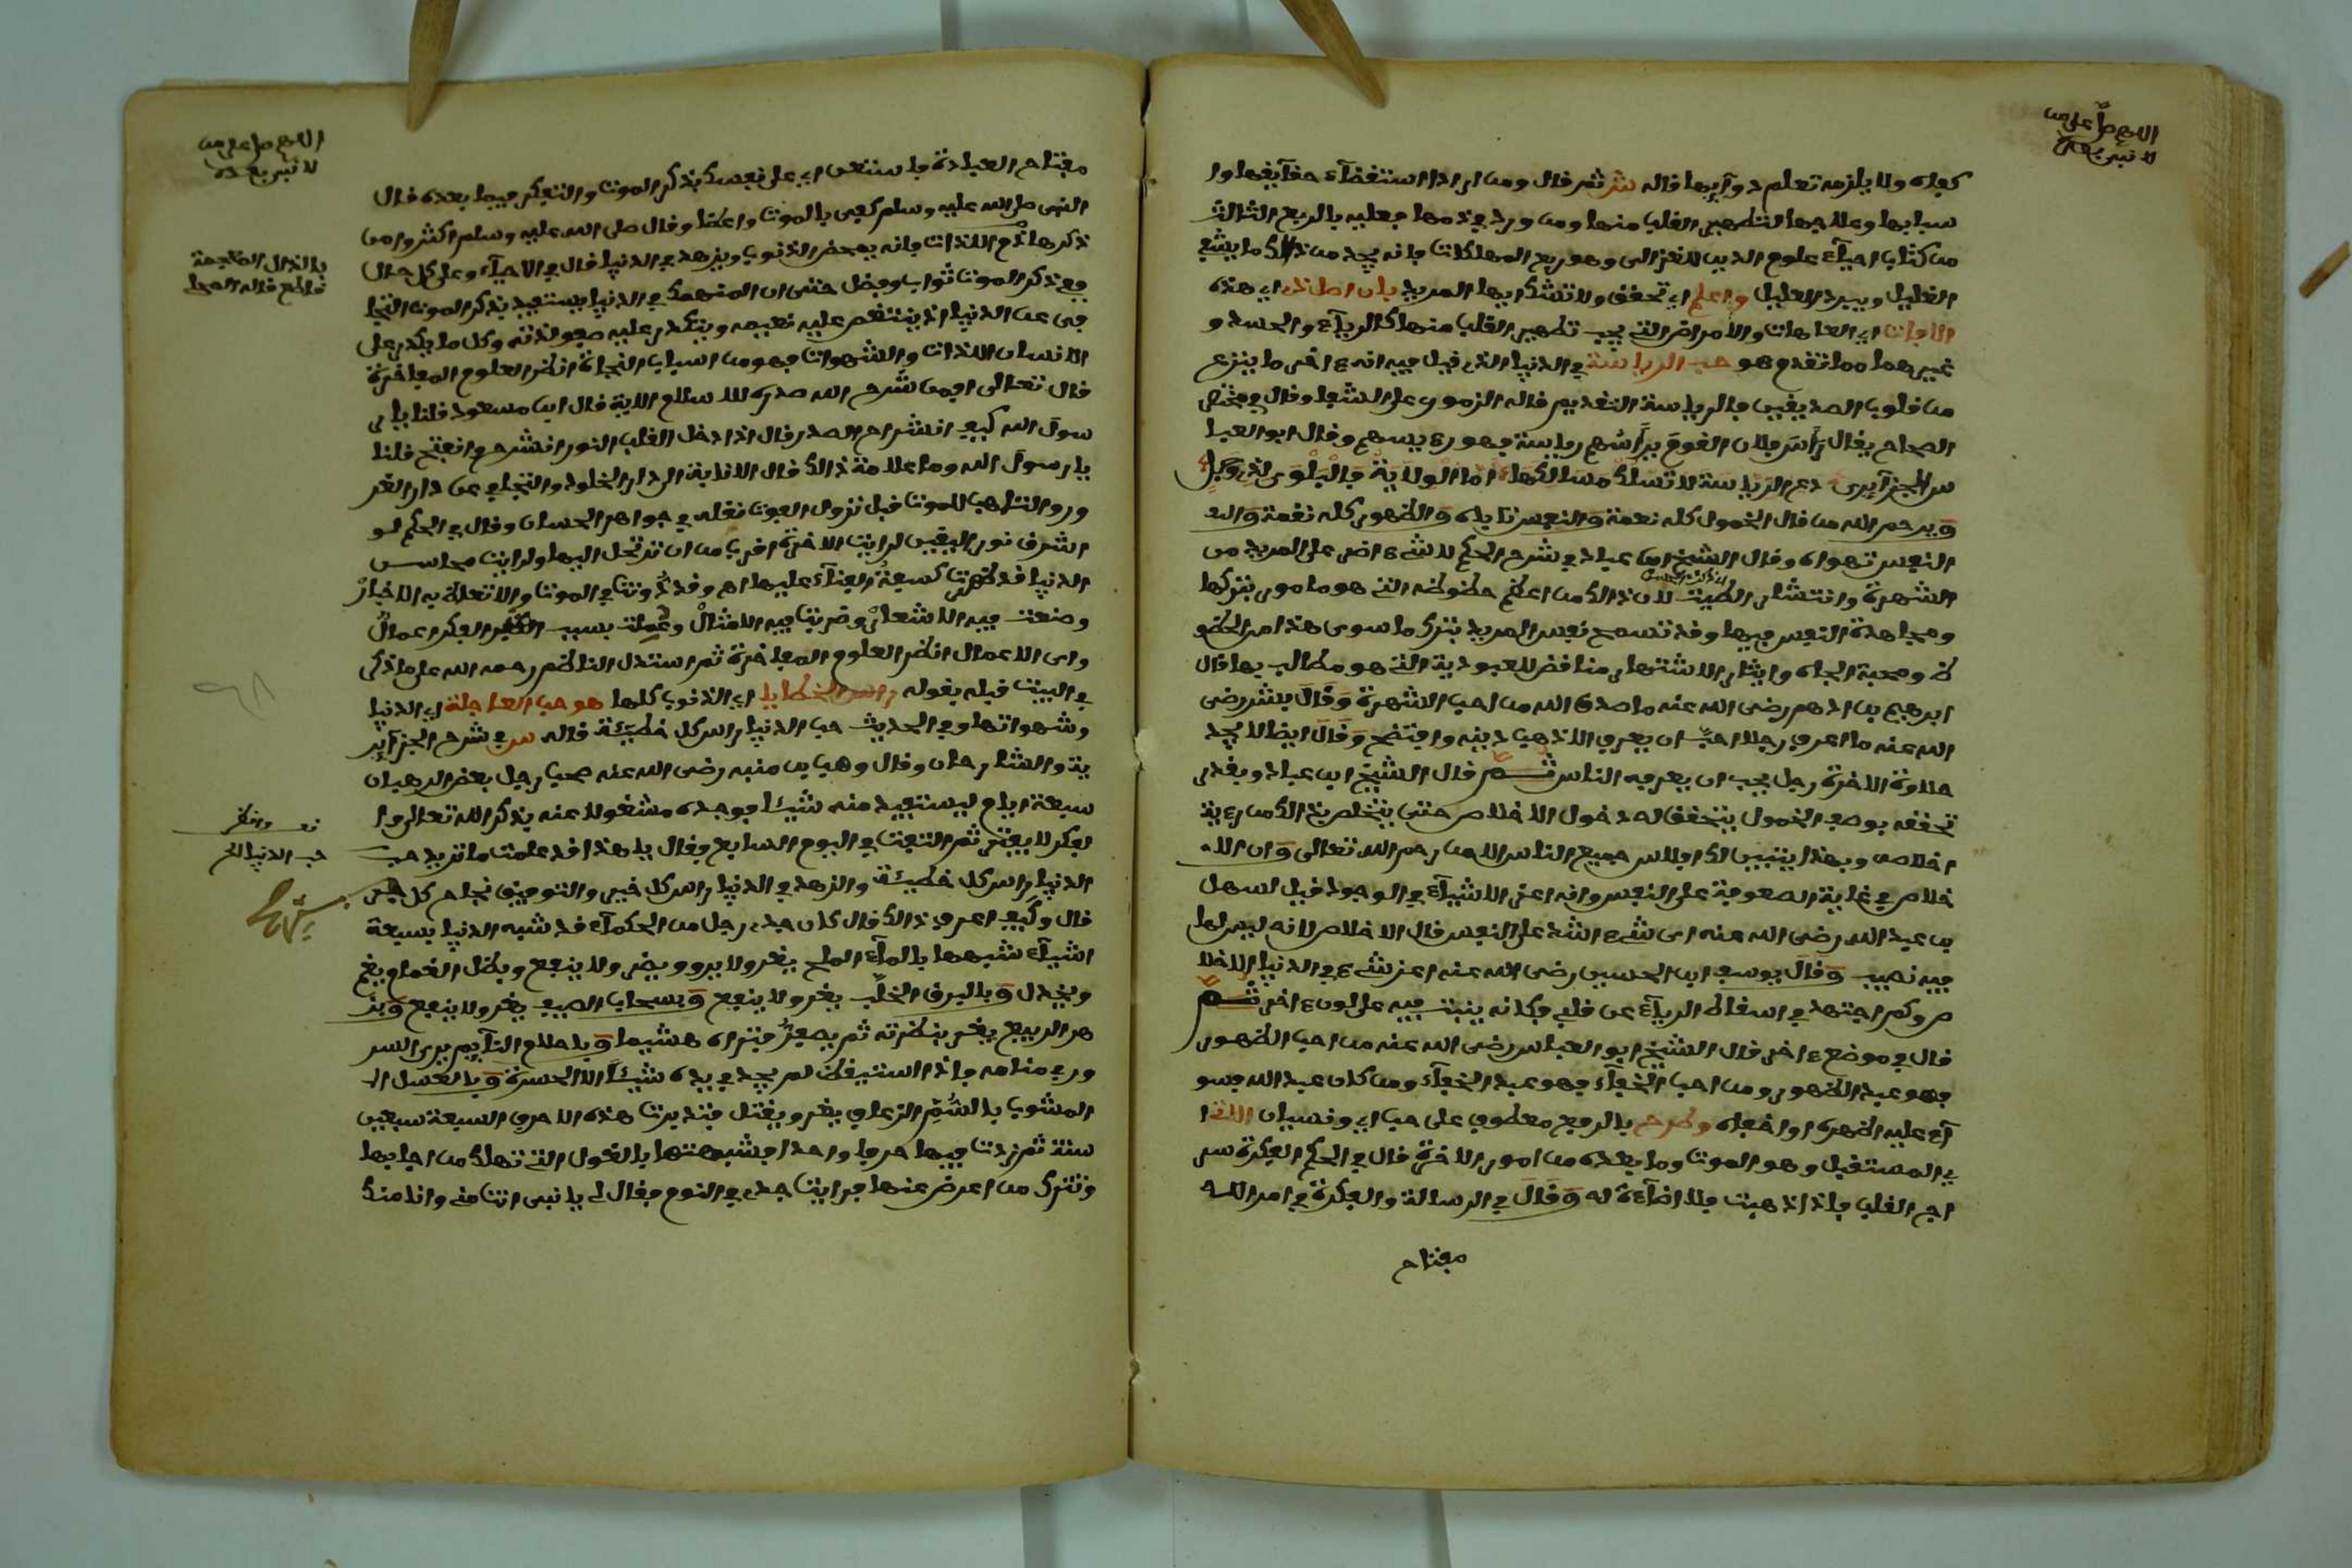 اللهم صل على من
لا نبي بعده
كفاه ولا يلزمه تعلم دوآيها قاله ش ثم قال ومن اراد استقضآء حقآيقها وا
سبابها وعلاجها لتطهير القلب منها ومن ورد في ذمها فعليه بالربع الثالث
من كتاب احيآء علوم الدين للغزالى وهو ربع المهلكات فانه يجد من ذالك ما يشفي
الغليل ويبرد العليل واعلم اي تحقق ولا تشك ايها المريد بان اصل ذي اي هذه
الافات اي العاهات والامراض التي يجب تطهير القلب منها كالريآء والحسد و
غيرهما مما تقدم هو حب الرياسة في الدنيا الذي قيل فيه انه ءاخر ما ينزع
من قلوب الصديقين فالرياسة التقديم قاله الزموري على الشفا وقال في مختصر
الصحاح يقال رأس فلان القوم يرأسهم رياسة فهو رءيسهم وقال ابو العبا
س الجزآيرى دع الرياسة لا تسلك مسالكها اما الولاية فالبلوى لذي
ويرحم الله من قال الخمول كله نعمة والنفس تاباه والظهور كله نقمة وال
النفس تهواه وقال الشيخ ابن عباد في شرح الحكم لا شيء اضر على المريد من
الشهرة وانتشار الصيت لان ذالك من اعظم حظوظه التي هو مامور بتركها
ومجاهدة النفس فيها وقد تسمح نفس المريد بترك ما سوى هذا من الحظو
ظ ومحبة الجاه وايثار الاشتهار مناقض للعبودية التي هو مطالب بها قال
ابرهيم بن ادهم رضى الله عنه ما صدق الله من احب الشهرة وقال بشر رضى
الله عنه ما اعرف رجلا احب ان يعرف الا ذهب دينه وافتضح وقال ايضا لا يجد
حلاوة الاخرة رجل يحب ان يعرفه الناس ثم قال الشيخ ابن عباد وبقدر
تحققه بوصف الخمول يتحقق له دخول الاخلاص حتى يتخلص بذالك من رءية
اخلاصه وبهذا يتبين لك افلاس جميع الناس الا من رحم الله تعالى وان الا
خلاص في غاية الصعوبة على النفس وانه اعز الاشيآء في الوجود قيل لسهل
بن عبد الله رضى الله عنه اى شيء اشد على النفس قال الاخلاص لانه ليس لها
فيه نصيب وقال يوسف ابن الحسين رضى الله عنه اعز شيء في الدنيا الاخلا
ص وكم اجتهد في اسقاط الريآء عن قلبي فكانه ينبت فيه على لون ءاخر ثم
قال في موضع ءاخر قال الشيخ ابو العباس رضى الله عنه من احب الظهور
فهو عبد الظهور ومن احب الخفآء فهو عبد الخفآء ومن كان عبد الله فسو
آء عليه اظهره او اخفاه وطرح بالرفع معطوف على حب اي ونسيان اللقا
في المستقبل وهو الموت وما بعده من امور الاخرة قال في الحكم الفكرة سر
اج القلب فاذا ذهبت فلا اضآءة له وقال في الرسالة والفكرة في امر الله
مفتاح
اللهم صل على من
لا نبي بعده
مفتاح العبادة فاستعن اي على نفسك بذكر الموت والتفكر فيما بعده قال
النبي صلى الله عليه وسلم كفى بالموت واعظا وقال صلى الله عليه وسلم اكثروا من
ذكر هاذم اللذات فانه يمحض الذنوب ويزهد في الدنيا قال في الاحيآء وعلى كل حال
بالذال المعجمة
قاطع قاله المحلى
ففي ذكر الموت ثواب وفضل حتى ان المنهمك في الدنيا يستفيد بذكر الموت التجا
فى عن الدنيا اذ ينتقص عليه نعيمه ويتكدر عليه صفو لذته وكل ما يكدر على
الانسان اللذات والشهوات فهو من اسباب النجاة انظر العلوم الفاخرة
قال تعالى افمن شرح الله صدره للاسلام الاية قال ابن مسعود قلنا يا ر
سول الله كيف انشراح الصدر قال اذا دخل القلب النور انشرح وانفتح قلنا
يا رسول الله وما علامة ذالك قال الانابة الى دار الخلود والتجافي عن دار الغر
ور والتاهب للموت قبل نزول الموت نقله في جواهر الحسان وقال في الحكم لو
اشرق نور اليقين لرايت الاخرة اقرب من ان ترتحل اليها ولرايت محاسن
الدنيا قد ظهرت كسفة الفنآء عليها اه وقد دونت في الموت والاتعاظ به الاخبار
وصنعت فيه الاشعار وضربت فيه الامثال وعملت بسبب الفكر اعمال
واى الاعمال انظر العلوم الفاخرة ثم استدل الناظم رحمه الله على ما ذكر
في البيت قبله بقوله راس الخطايا اي الذنوب كلها هو حب العاجلة اي الدنيا
وشهواتها وفي الحديث حب الدنيا راس كل خطيئة قاله س في شرح الجزآير
ية والشارحان وقال وهب بن منبه رضى الله عنه صحب رجل بعض الرهبان
سبعة ايام ليستفيد منه شيئا فوجده مشغولا عنه بذكر الله تعالى وا
لفكر لا يفتر ثم التفت في اليوم السابع فقال يا هذا قد علمت ما تريد حب
حب الدنيا الخ
الدنيا راس كل خطيئة والزهد في الدنيا راس كل خير والتوفيق نجاح كل خير
قال وكيف اعرف ذالك قال كان جدي رجل من الحكمآء قد شبه الدنيا بسبعة
اشيآء شبهها بالمآء الملح يغر ولا يروي ويضر ولا ينفع وبظل الغمام يغر
ويخذل وبالبرق الخلب يغر ولا ينفع وبسحاب الصيف يغر ولا ينفع وبز
هر الربيع يغر بنظرته ثم يصفر فتراه هشيما وباحلام النآيم يرى السر
ور في منامه فاذا استيقظ لم يجد في يده شيئا الا الحسرة وبالعسل
المشوب بالسم الزعاف يغر ويقتل فتدبرت هذه الاحرف السبعة سبعين
سنة ثم زدت فيها حرفا واحدا فشبهتها بالغول التي تهلك من اجابها
وتترك من اعرض عنها فرايت جدي في النوم فقال لي يا نبى انت مني وانا منك